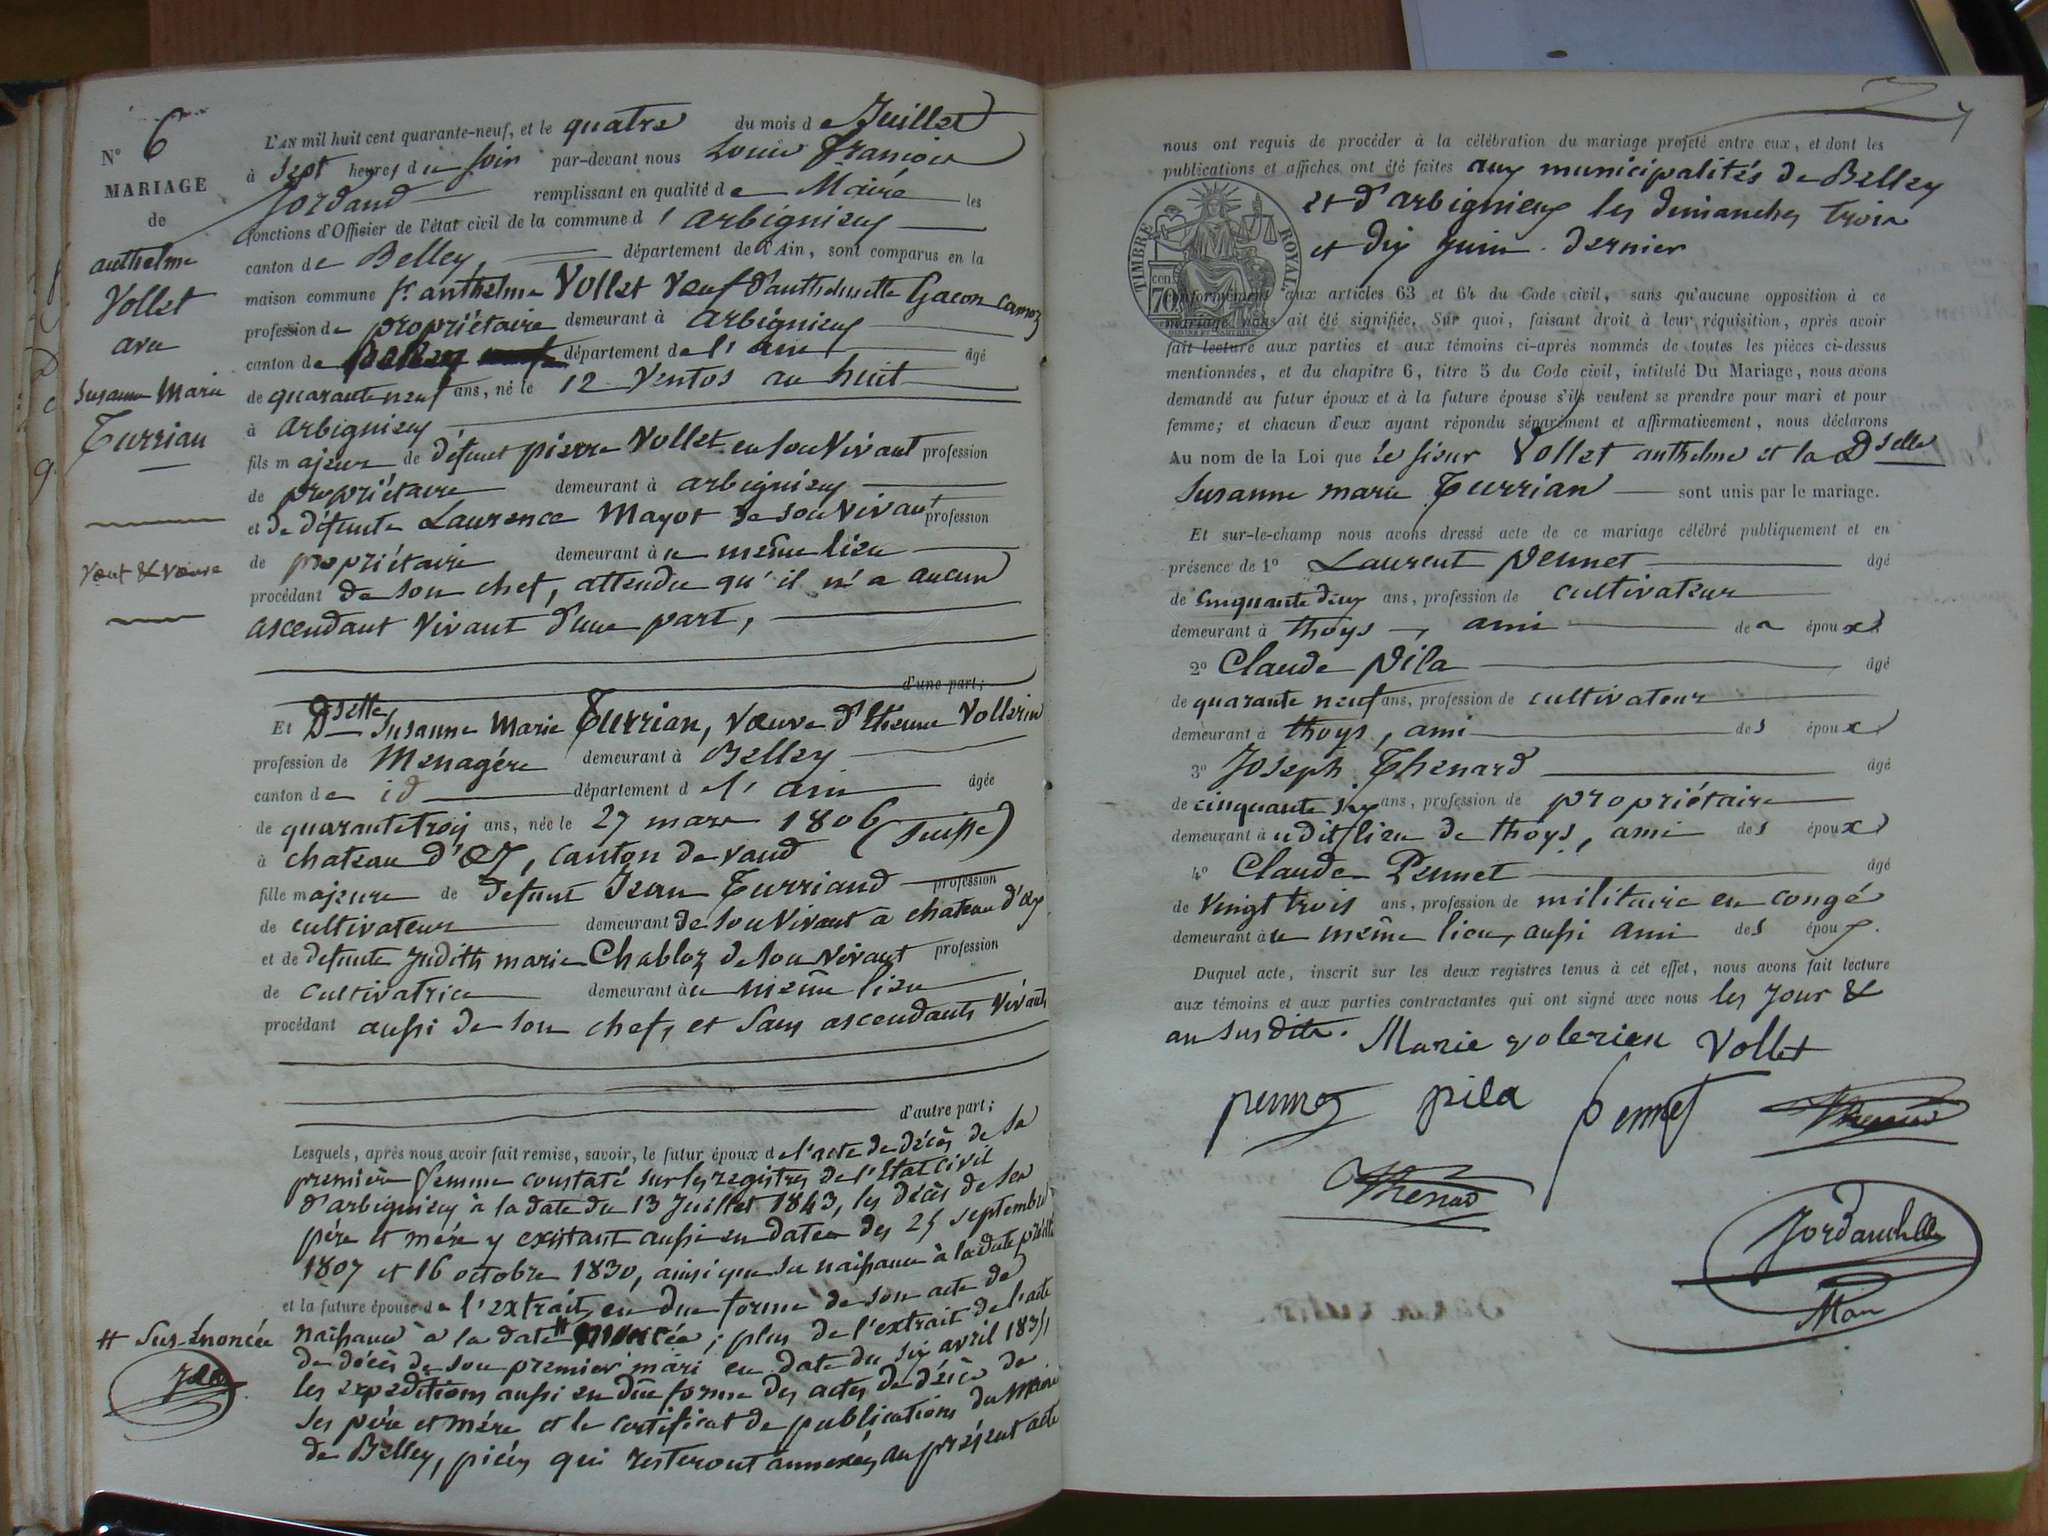 N° 6
MARIAGE
de
anthelme
Vollet
avec
Susanne Marie
Turrian
Veuf & Veuve
# Sus-énoncée
L'AN mil huit cent quarante-neuf, et le quatre du mois de Juillet
à sept heures du soir par-devant nous Louis François
Jordand remplissant en qualité de Maire les
fonctions d'Officier de l'état civil de la commune d'arbignieu
canton de Belley, département de l'Ain, sont comparus en la
maison commune Sr. anthelme Vollet Veuf d'anthelmette Gacon
profession de propriétaire demeurant à arbignieu
canton de département de l'ain âgé
de quarante neuf ans, né le 12 Ventos an huit
à arbignieu
fils majeur de défunt pierre Vollet en son Vivant profession
de propriétaire demeurant à arbignieu
et de défunte Laurence Mayot de son Vivant profession
de propriétaire demeurant au même lieu
procédant de son chef, attendu qu'il n'a aucun
ascendant Vivant d'une part,
d'une part;
Et Dselle Susanne Marie Turrian, Veuve d'Etienne Vollerin
profession de Menagére demeurant à Belley
canton de id département de l'ain âgée
de quarante trois ans, née le 27 mars 1806
à chateau d'OEX, canton de vaud (Suisse)
fille majeure de defunt Jean Turriand profession
de cultivateur demeurant de son Vivant à chateau d'œx
et de defunte Judith marie Chabloz de son vivant profession
de cultivatrice demeurant au même lieu
procédant aussi de son chef, et sans ascendants Vivants
d'autre part;
Lesquels, après nous avoir fait remise, savoir, le futur époux de l'acte de décès de sa
première femme constaté sur les registres de l'Etat civil
d'arbignieu à la date du 13 Juillet 1843, les décès de ses
père et mère y existant aussi en dates des 25 septembre
1807 et 16 octobre 1830, ainsi que sa naissance à la date
et la future épouse de l'extrait en due forme de son acte de
naissance à la date # ; plus de l'extrait de l'acte
de décès de son premier mari en date du six avril
les expéditions aussi en due forme des actes de décès de
ses père et mère et le certificat de publications du Maire
de Belley, pièces qui resteront annexées au présent acte
7
nous ont requis de procéder à la célébration du mariage projeté entre eux, et dont les
publications et affiches ont été faites aux municipalités de Belley
et d'arbignieu les dimanches trois
et dix juin dernier
TIMBRE ROYAL.
70 cen
conformément aux articles 63 et 64 du Code civil, sans qu'aucune opposition à ce
mariage nous ait été signifiée. Sur quoi, faisant droit à leur réquisition, après avoir
fait lecture aux parties et aux témoins ci-après nommés de toutes les pièces ci-dessus
mentionnées, et du chapitre 6, titre 5 du Code civil, intitulé Du Mariage, nous avons
demandé au futur époux et à la future épouse s'ils veulent se prendre pour mari et pour
femme; et chacun d'eux ayant répondu séparément et affirmativement, nous déclarons
Au nom de la Loi que le sieur Vollet anthelme et la Dselle
Susanne marie Turrian sont unis par le mariage.
Et sur-le-champ nous avons dressé acte de ce mariage célébré publiquement et en
présence de 1° Laurent Pennet âgé
de cinquante deux ans, profession de cultivateur
demeurant à thoys, ami de époux
2° Claude Pila âgé
de quarante neuf ans, profession de cultivateur
demeurant à thoys, ami des époux
3° Joseph Thenard âgé
de cinquante six ans, profession de propriétaire
demeurant audit lieu de thoys, ami des époux
4° Claude Pennet âgé
de vingt trois ans, profession de militaire en congé
demeurant au même lieu, aussi ami des époux.
Duquel acte, inscrit sur les deux registres tenus à cet effet, nous avons fait lecture
aux témoins et aux parties contractantes qui ont signé avec nous les jour &
an susdits. Marie volerien Vollet
pennez pila pennet Thenard
Thenard
Mar